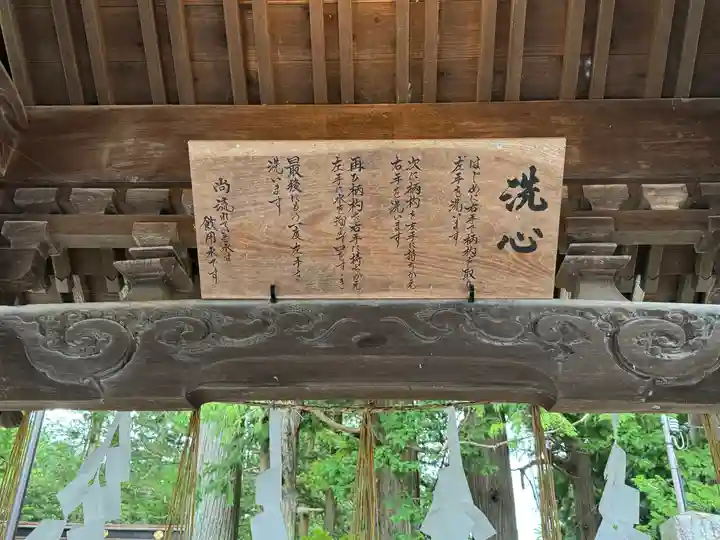 洗心
はじめに右手で柄杓を取り
左手を洗います
次に柄杓を左手に持ちかえ
右手を洗います
再び柄杓を右手に持ちかえ
左手に水を
最後にもう一度左手を
洗います
尚流れている水は
飲用水です